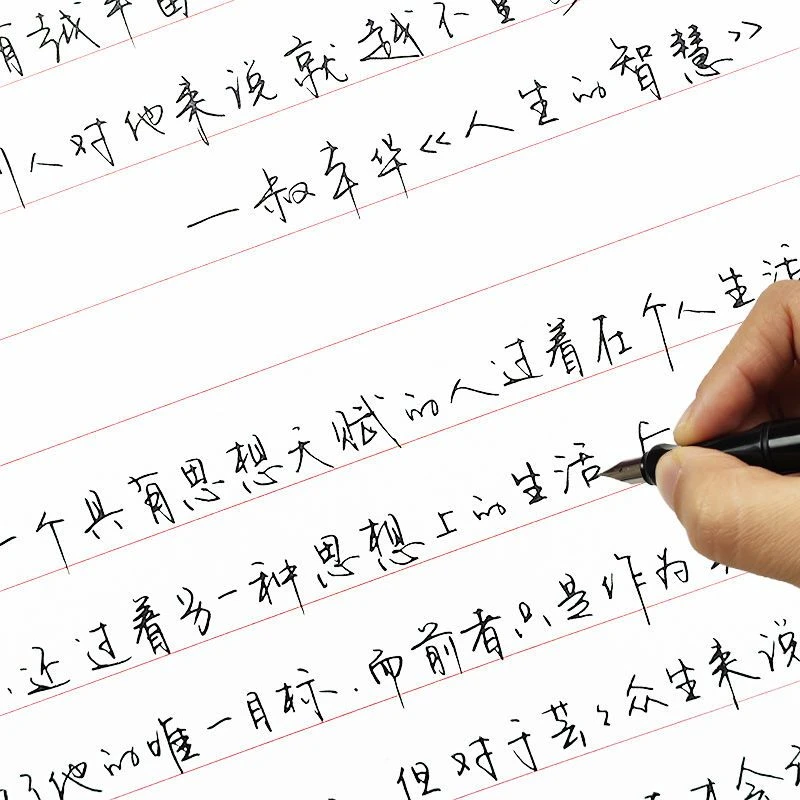 有越丰富
人对他来说就越不
一叔本华《人生的智慧》
一个具有思想天赋的人过着在个人生活
还过着另一种思想上的生活
他的唯一目标.而前者只是作为
但对于芸々众生来说